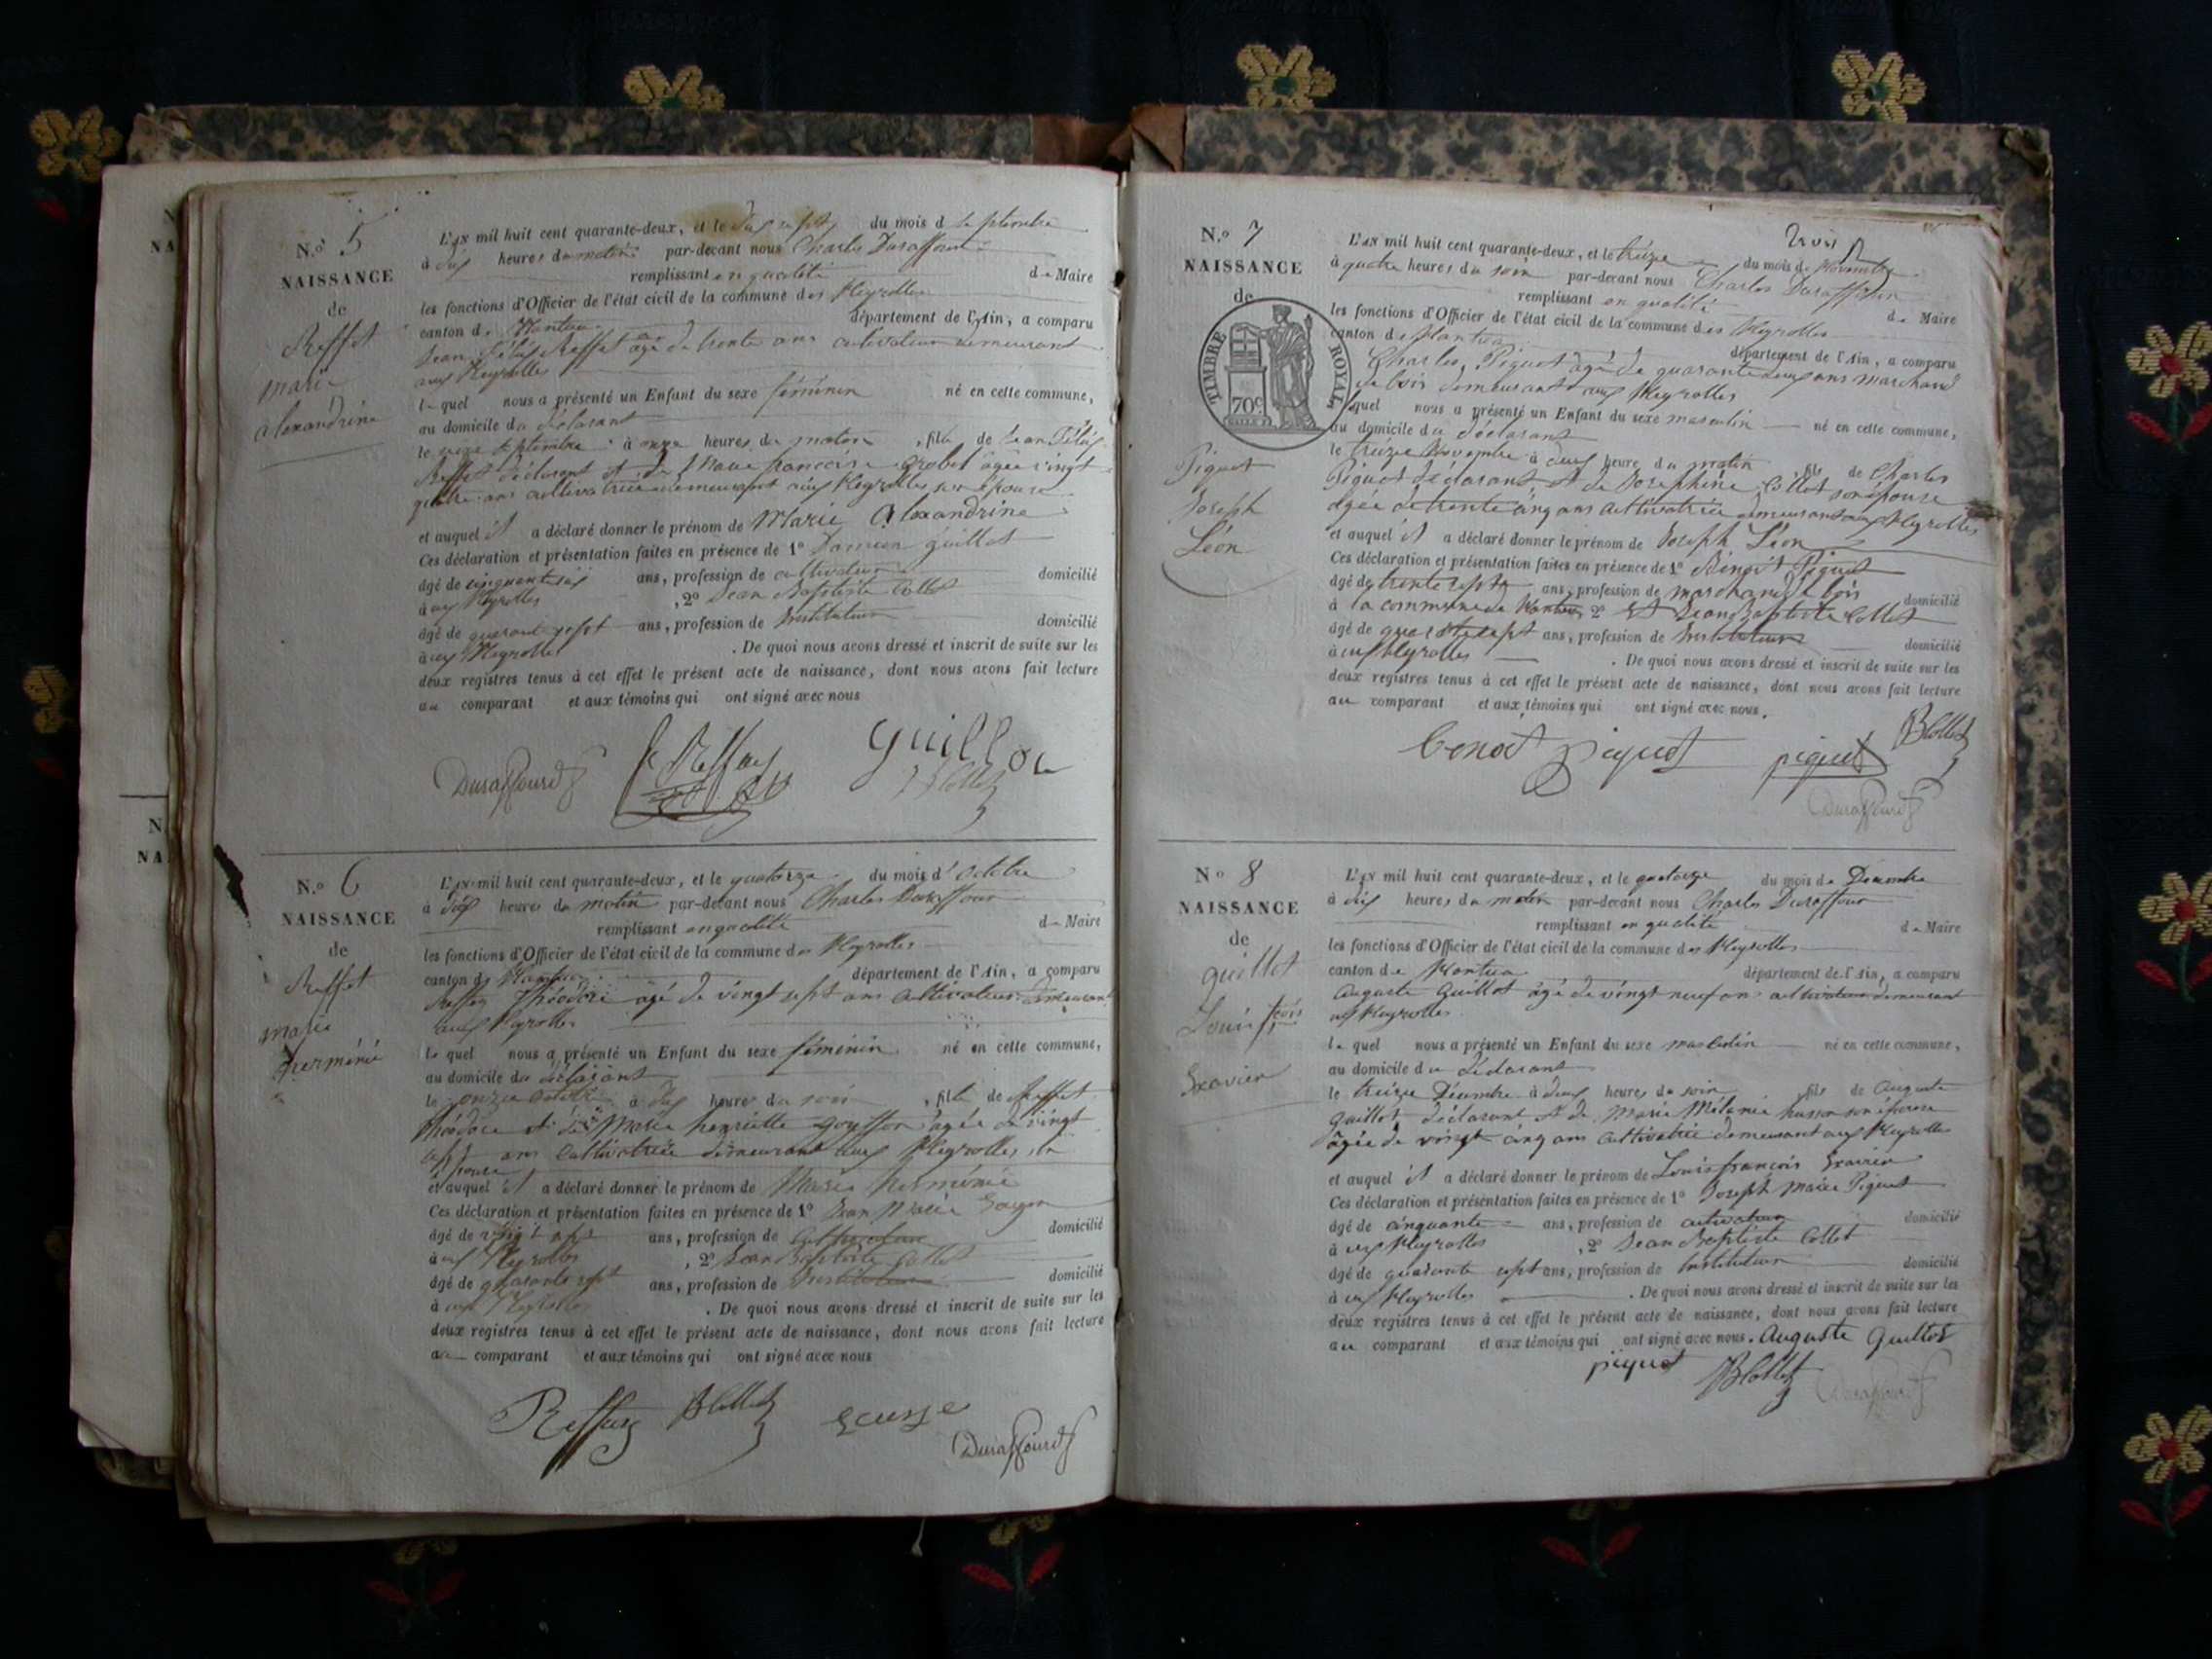 N.º 5
NAISSANCE
de
Reffet
marie
alexandrine
L'AN mil huit cent quarante-deux, et le dix sept du mois d septembre
à dix heures du matin par-devant nous Charles Duraffourd
remplissant en qualité de Maire
les fonctions d'Officier de l'état civil de la commune des Neyrolles
canton de Nantua département de l'Ain, a comparu
Jean Félix Reffet âgé de trente ans cultivateur demeurant
aux Neyrolles
lequel nous a présenté un Enfant du sexe féminin né en cette commune,
au domicile du déclarant
le septembre à onze heures du matin, fille de Jean Félix
Reffet déclarant et de Marie francoise âgée vingt
quatre ans cultivatrice demeurant aux Neyrolles son épouse
et auquel il a déclaré donner le prénom de Marie Alexandrine
Ces déclaration et présentation faites en présence de 1º Damien guillot
âgé de cinquante six ans, profession de cultivateur domicilié
aux Neyrolles, 2º Jean Baptiste Collet
âgé de quarante sept ans, profession de Instituteur domicilié
aux Neyrolles. De quoi nous avons dressé et inscrit de suite sur les
deux registres tenus à cet effet le présent acte de naissance, dont nous avons fait lecture
au comparant et aux témoins qui ont signé avec nous
Duraffourd guillot
JBCollet
N.º 6
NAISSANCE
de
Reffet
marie
herménie
L'AN mil huit cent quarante-deux, et le quatorze du mois d'octobre
à dix heures du matin par-devant nous Charles Duraffour
remplissant en qualité de Maire
les fonctions d'Officier de l'état civil de la commune des Neyrolles
canton de Nantua département de l'Ain, a comparu
Reffay théodore âgé de vingt sept ans cultivateur demeurant
aux Neyrolles
lequel nous a présenté un Enfant du sexe féminin né en cette commune,
au domicile du déclarant
le onze octobre à dix heures du soir, fille de Reffet
théodore et de Marie henriette goyffon âgée de vingt
sept ans cultivatrice demeurant aux Neyrolles, son
épouse
et auquel il a déclaré donner le prénom de Marie herménie
Ces déclaration et présentation faites en présence de 1º Jean Marie
âgé de ans, profession de cultivateur domicilié
aux Neyrolles, 2º Jean Baptiste Collet
âgé de quarante sept ans, profession de Instituteur domicilié
aux Neyrolles. De quoi nous avons dressé et inscrit de suite sur les
deux registres tenus à cet effet le présent acte de naissance, dont nous avons fait lecture
au comparant et aux témoins qui ont signé avec nous
Reffay JBCollet
Duraffourd
trois
N.º 7
NAISSANCE
de
TIMBRE ROYAL
70 c
Piquet
Joseph
Léon
L'AN mil huit cent quarante-deux, et le treize du mois de Novembre
à quatre heures du soir par-devant nous Charles Duraffour
remplissant en qualité de Maire
les fonctions d'Officier de l'état civil de la commune des Neyrolles
canton de Nantua département de l'Ain, a comparu
Charles Piquet âgé de quarante deux ans marchand
de bois demeurant aux Neyrolles
lequel nous a présenté un Enfant du sexe masculin né en cette commune,
au domicile du déclarant
le treize Novembre à deux heure du matin, fils de Charles
Piquet déclarant et de Josephine Collet son épouse
âgée de trente cinq ans cultivatrice demeurant aux Neyrolles
et auquel il a déclaré donner le prénom de Joseph Léon
Ces déclaration et présentation faites en présence de 1º Benoit Piquet
âgé de trente sept ans, profession de marchand de bois domicilié
à la commune de Nantua 2º et Jean Baptiste Collet
âgé de quarante sept ans, profession de Instituteur domicilié
aux Neyrolles. De quoi nous avons dressé et inscrit de suite sur les
deux registres tenus à cet effet le présent acte de naissance, dont nous avons fait lecture
au comparant et aux témoins qui ont signé avec nous.
benoit piquet piquet JBCollet
Duraffourd
Nº 8
NAISSANCE
de
guillot
Louis fçois
Exavier
L'AN mil huit cent quarante-deux, et le quatorze du mois de Décembre
à dix heures du matin par-devant nous Charles Duraffour
remplissant en qualité de Maire
les fonctions d'Officier de l'état civil de la commune des Neyrolles
canton de Nantua département de l'Ain, a comparu
Auguste Guillot âgé de vingt neuf ans cultivateur demeurant
aux Neyrolles
lequel nous a présenté un Enfant du sexe masculin né en cette commune,
au domicile du déclarant
le treize Décembre à deux heures du soir, fils de Auguste
guillot déclarant et de Marie Mélanie husson son épouse
âgée de vingt cinq ans cultivatrice demeurant aux Neyrolles
et auquel il a déclaré donner le prénom de Louis françois Exavier
Ces déclaration et présentation faites en présence de 1º Joseph Marie Piquet
âgé de cinquante ans, profession de cultivateur domicilié
aux Neyrolles, 2º Jean Baptiste Collet
âgé de quarante sept ans, profession de Instituteur domicilié
aux Neyrolles. De quoi nous avons dressé et inscrit de suite sur les
deux registres tenus à cet effet le présent acte de naissance, dont nous avons fait lecture
au comparant et aux témoins qui ont signé avec nous. Auguste Guillot
piquet JBCollet Duraffourd